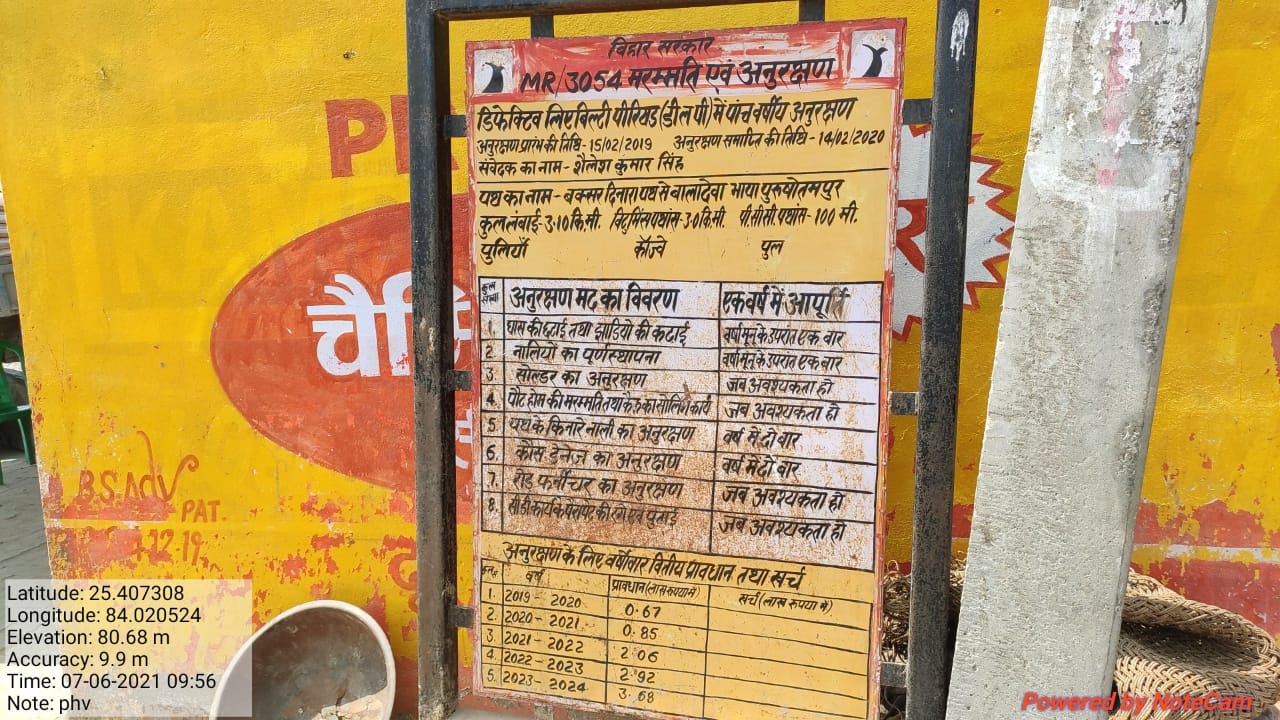 बिहार सरकार
MR/3054 मरम्मति एवं अनुरक्षण
डिफेक्टिव लिए बिल्टी पीरियड (डी.एल पी) में पांच वर्षीय अनुरक्षण
अनुरक्षण प्रारंभ की तिथि - 15/02/2019 अनुरक्षण समाप्ति की तिथि - 14/02/2020
संवेदक का नाम - शैलेश कुमार सिंह
पथ का नाम - बक्सर दिनारा पथ से बालादेवा भाया पुरुषोतमपुर
कुल लंबाई - 3.10 कि.मी. विटुमिंस पथांस - 3.0 कि.मी. पी.सी.सी. पथांस - 100 मी.
पुलियाँ कॉज्वे पुल
अनुरक्षण मद का विवरण एक वर्ष में आपूर्ति
1. घास की छटाई तथा झाडियो की कटाई वर्षा मूनू के उपरांत एक बार
2. नालियो का पूर्णस्थापना वर्षा मूनू के उपरांत एक बार
3. सोल्डर का अनुरक्षण जब अवश्यकता हो
4. पौट होल्स की मरम्मति तथा कार्य जब अवश्यकता हो
5. पथ के किनारे नाली का अनुरक्षण वर्ष में दो बार
6. कौस ड्रेनेज का अनुरक्षण वर्ष में दो बार
7. रोड फर्नीचर का अनुरक्षण जब अवश्यकता हो
8. सीडी कार्य के पैरापेट की रंग एवं पुताई जब अवश्यकता हो
अनुरक्षण के लिए वर्षोवार वितीय प्रावधान तथा खर्च
वर्ष प्रावधान (लाख रुपया मे) खर्च (लाख रुपया मे)
1. 2019 - 2020 0.67
2. 2020 - 2021 0.85
3. 2021 - 2022 2.06
4. 2022 - 2023 2.92
5. 2023 - 2024 3.68
B.S. Adv
PAT.
12.19
Latitude: 25.407308
Longitude: 84.020524
Elevation: 80.68 m
Accuracy: 9.9 m
Time: 07-06-2021 09:56
Note: phv
Powered by NoteCam